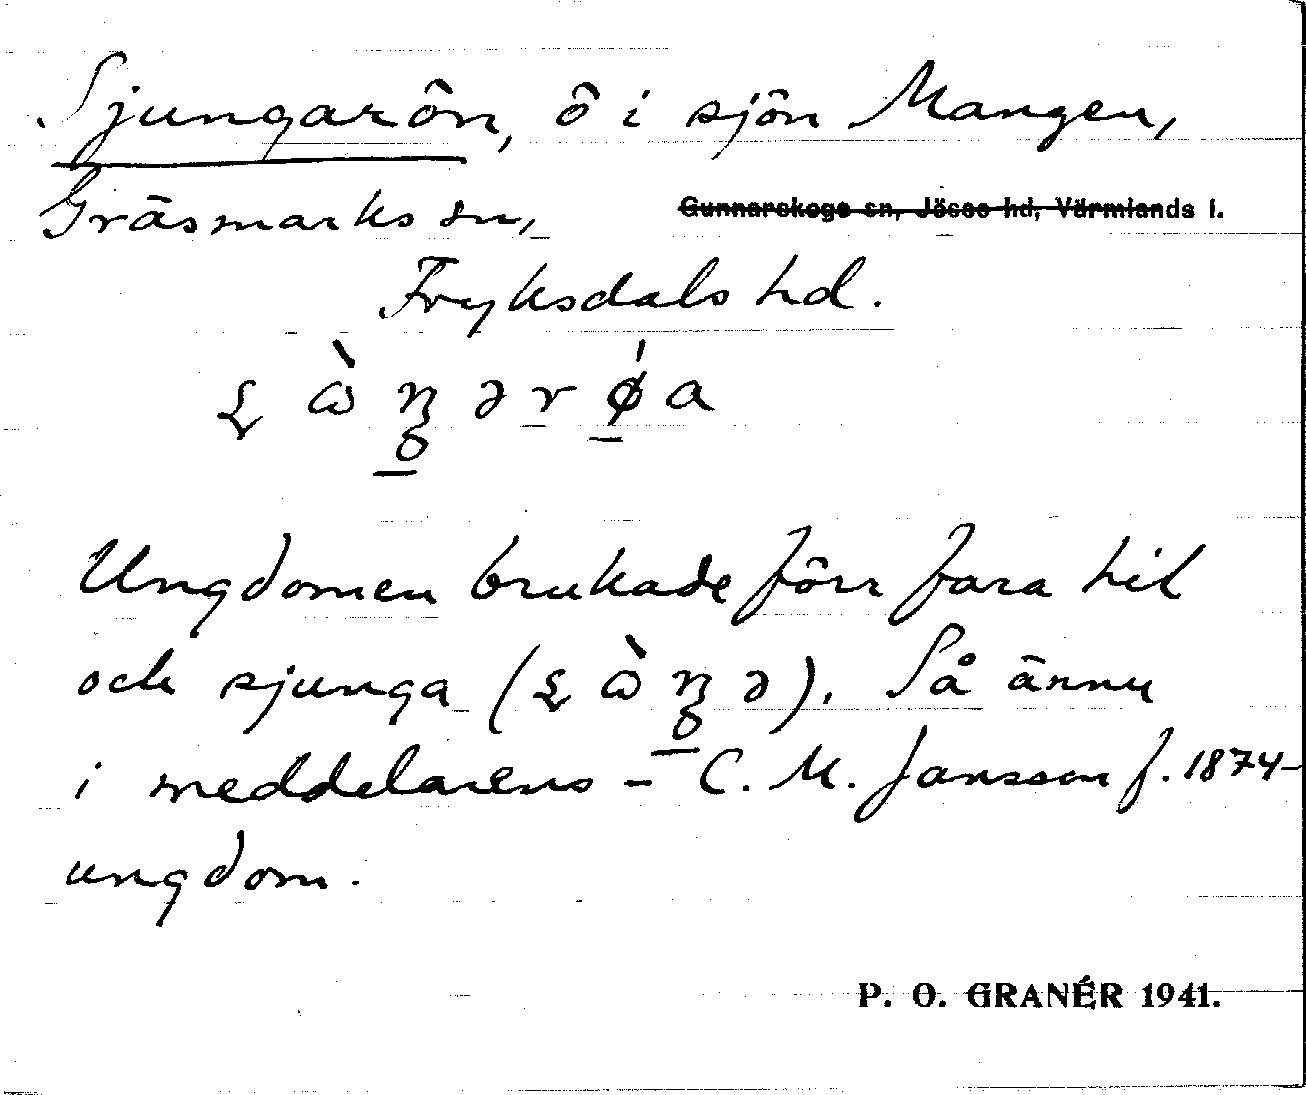 Sjungarön, ö i sjön Mangen,
Gräsmarks sn, Gunnarskogs sn, Jösse hd, Värmlands l.
Fryksdals hd.
Ungdomen brukade förr fara hit
och sjunga (). Så ännu
i meddelarens – C. M. Jansson f. 1874 –
ungdom.
P. O. GRANÉR 1941.